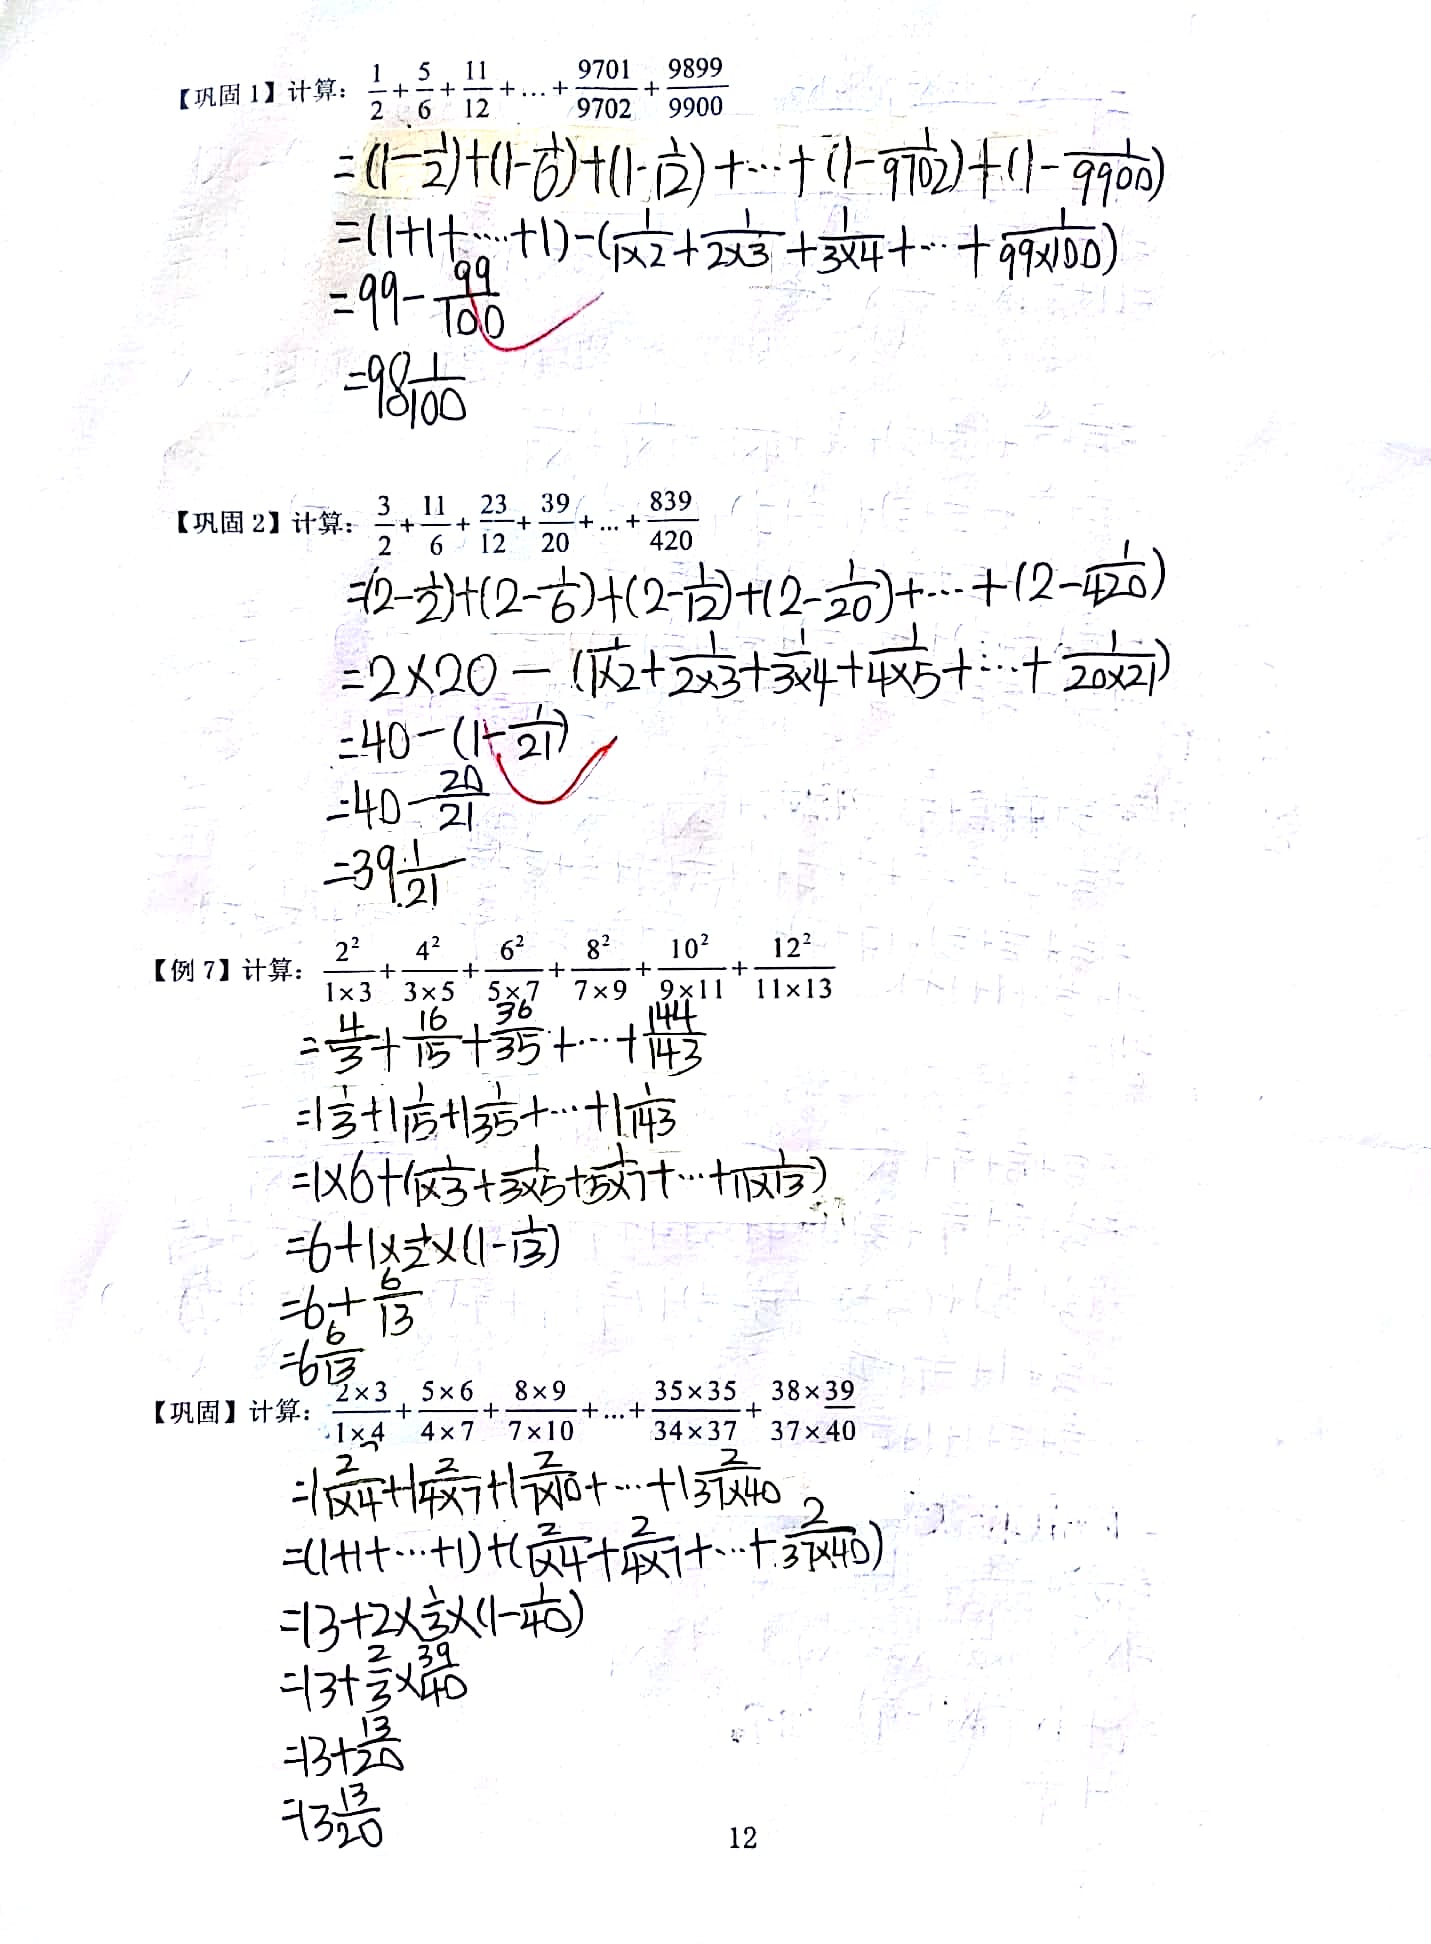 【巩固 1】计算：1/2 + 5/6 + 11/12 + … + 9701/9702 + 9899/9900
=(1-1/2)+(1-1/6)+(1-1/12)+…+(1-1/9702)+(1-1/9900)
=(1+1+……+1)-(1/1×2+1/2×3+1/3×4+…+1/99×100)
=99-99/100
=98 1/100
【巩固 2】计算：3/2 + 11/6 + 23/12 + 39/20 + … + 839/420
=(2-1/2)+(2-1/6)+(2-1/12)+(2-1/20)+…+(2-1/420)
=2×20-(1/1×2+1/2×3+1/3×4+1/4×5+…+1/20×21)
=40-(1-1/21)
=40-20/21
=39 1/21
【例 7】计算：2²/1×3 + 4²/3×5 + 6²/5×7 + 8²/7×9 + 10²/9×11 + 12²/11×13
=4/3+16/15+36/35+…+144/143
=1 1/3+1 1/15+1 1/35+…+1 1/143
=1×6+(1/1×3+1/3×5+1/5×7+…+1/11×13)
=6+1×1/2×(1-1/13)
=6+6/13
=6 6/13
【巩固】计算：2×3/1×4 + 5×6/4×7 + 8×9/7×10 + … + 35×35/34×37 + 38×39/37×40
=1 2/1×4+1 2/4×7+1 2/7×10+…+1 2/37×40
=(1+1+…+1)+(2/1×4+2/4×7+…+2/37×40)
=13+2×1/3×(1-1/40)
=13+2/3×39/40
=13+13/20
=13 13/20
12